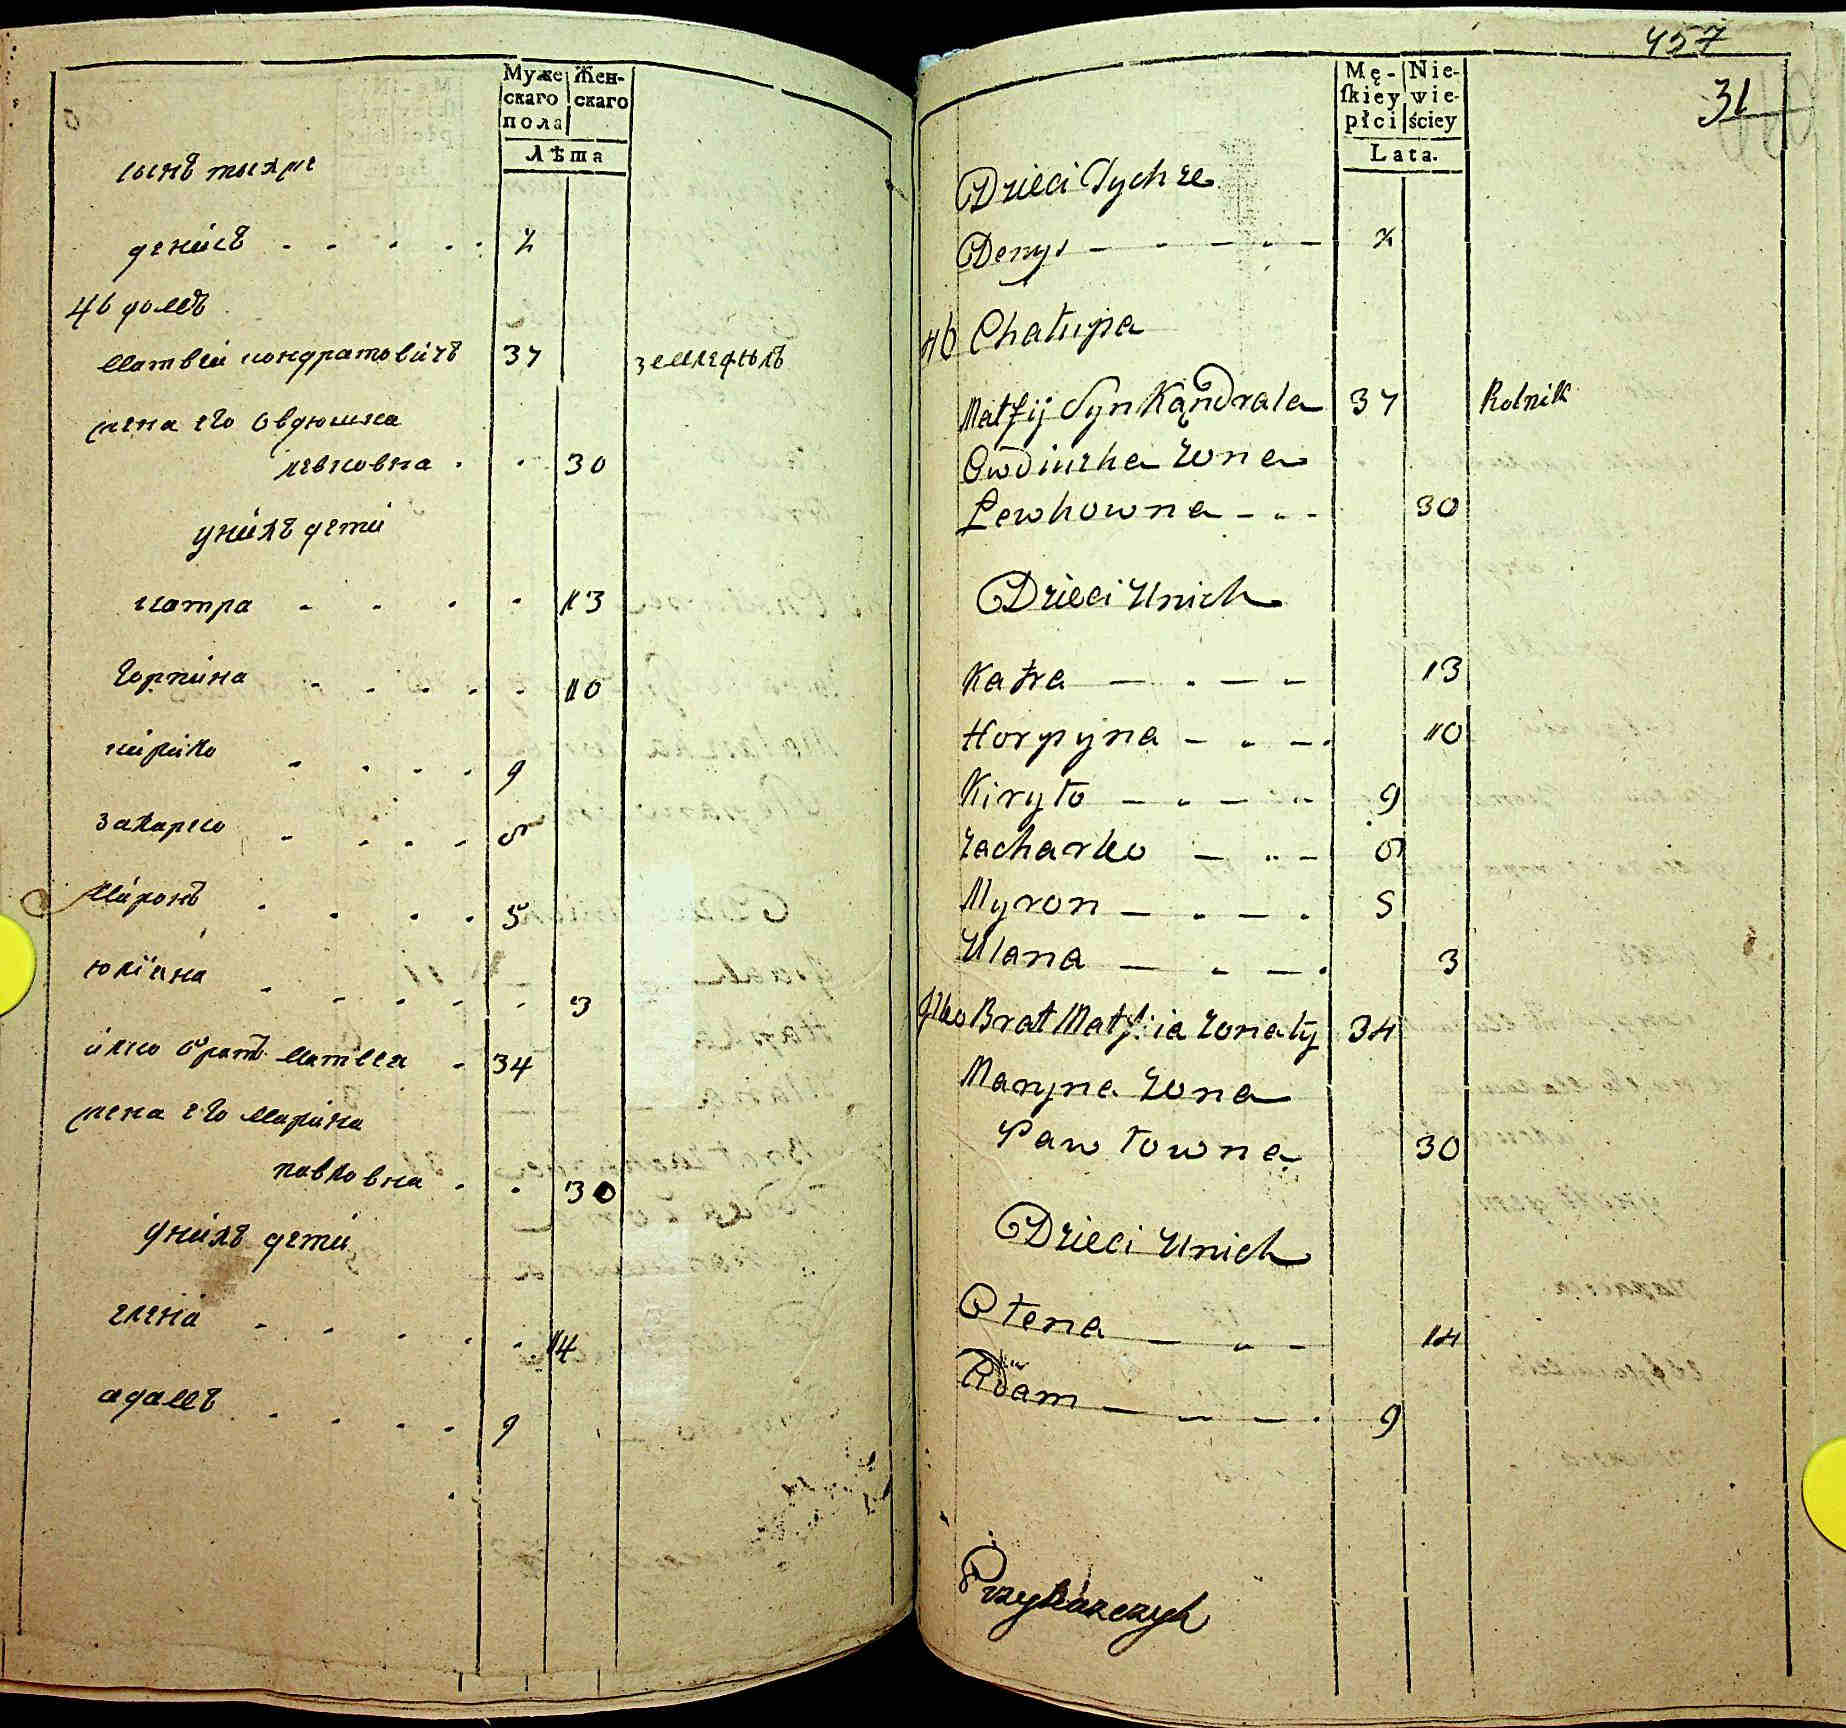 Муже Жен-
скаго скаго
пола
Лѣта
сынъ тыхже
денисъ - - - - -
46 домъ
Матвѣй кондратовичъ 37 земледѣлъ
жена его Овдюшка
левковна - - 30
унихъ дети
катра - - - - 13
Горпина - - - - - 10
кирило - - - - 9
Захарко - - - - 6
Миронъ - - - - 5
юлiана - - - - - 3
илко братъ Матвея - 34
жена его Марина
павловна - - 30
унихъ дети
елена - - - - - 14
адамъ - - - - 9
457
31
Mę- Nie-
ſkiey wie-
płci ściey
Lata.
Dzieci Tychże
Denys - - - - -
46 Chałupa
Matfij Syn Kąndrata 37 Rolnik
Owdiuszka żona
Lewkowna - - - 30
Dzieci Unich
Katra - - - - 13
Horpyna - - - - 10
Kiryło - - - - - 9
Zacharko - - - 6
Myron - - - - 5
Ulana - - - - 3
Ilko Brat Matfija żonaty 34
Maryna żona
Pawłowna 30
Dzieci Unich
Ołena - - - 14
Adam - - - - 9